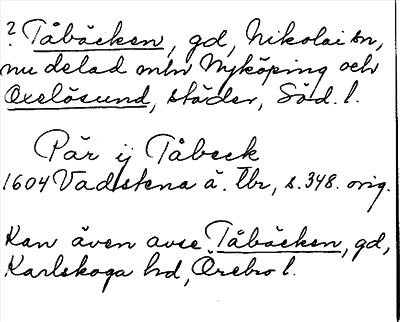 ? Tåbäcken, gd, Nikolai sn,
nu delad mln Nyköping och
Oxelösund, städer, Söd. l.
Pär ij Tåbeck
1604 Vadstena ä. tbr, s. 348. orig.
Kan även avse Tåbäcken, gd,
Karlskoga hd, Örebro l.